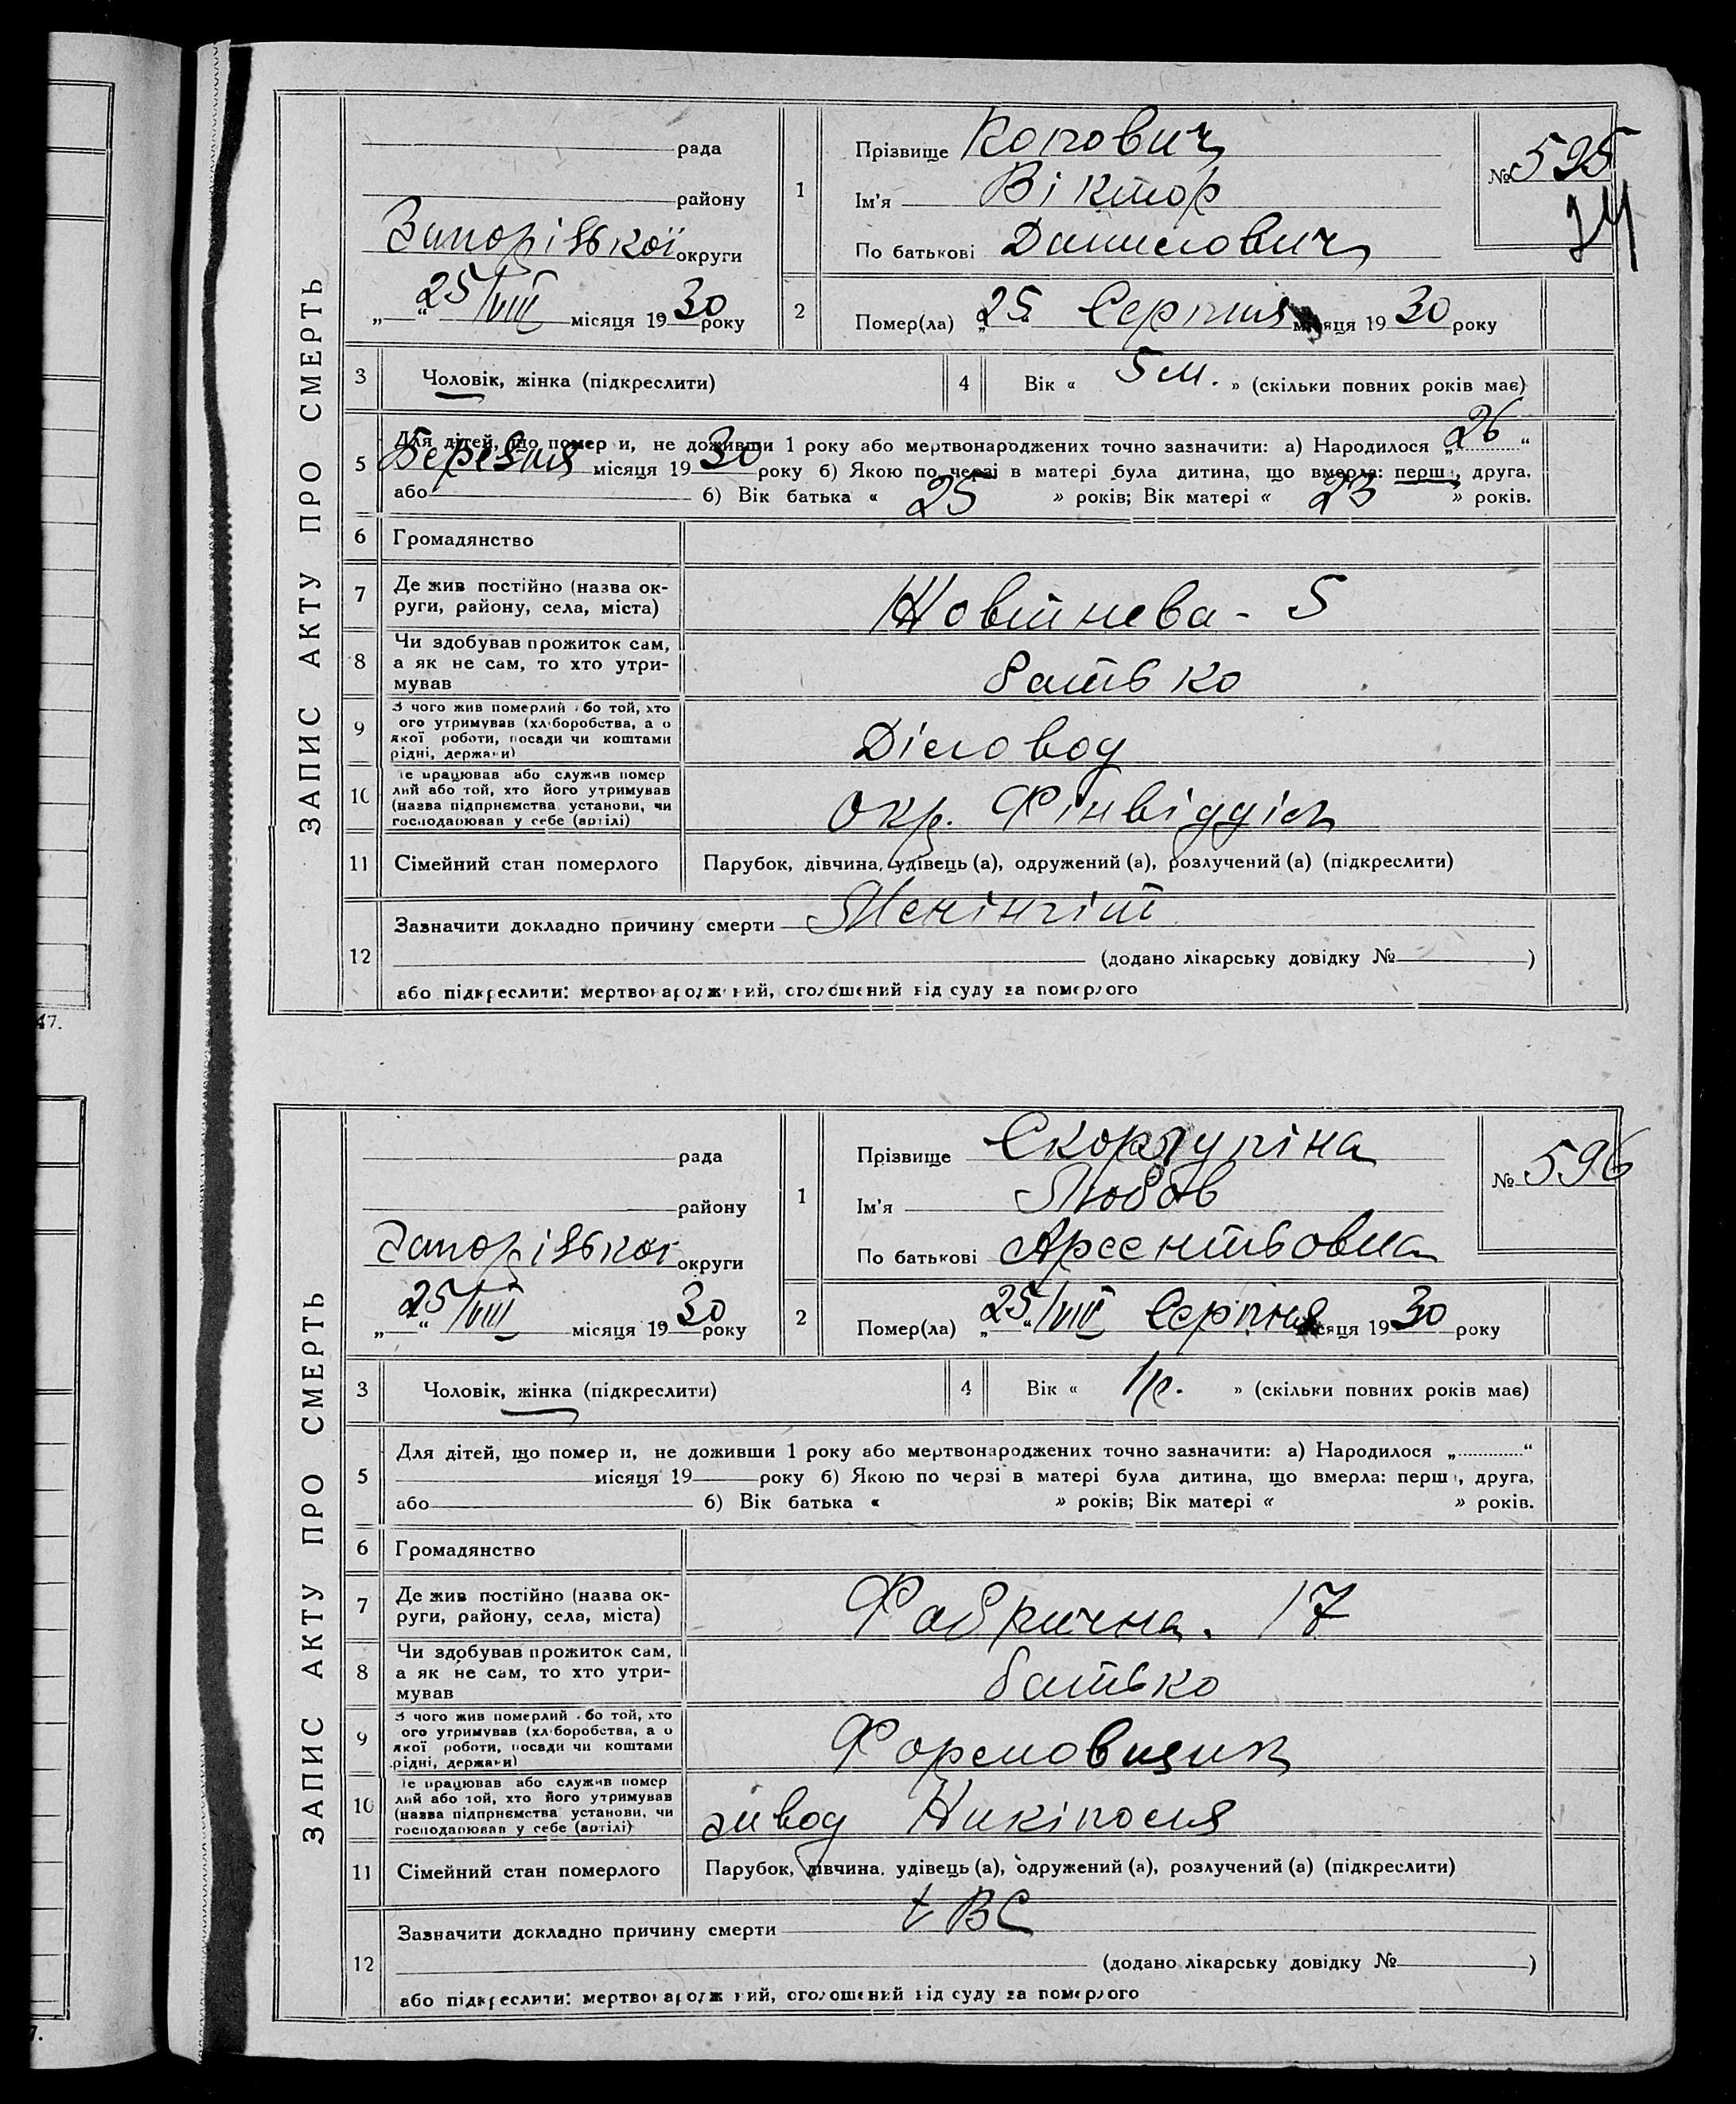 47.
ЗАПИС АКТУ ПРО СМЕРТЬ
рада
району
Запорізької округи
„ 25/VIII “ місяця 1930 року
1
Прізвище Копович
Ім'я Віктор
По батькові Данилович
№ 595
24
2
Помер(ла) „25“ Серпня місяця 1930 року
3
Чоловік, жінка (підкреслити)
4
Вік « 5 м. » (скільки повних років має)
5
Для дітей, що померли, не доживши 1 року або мертвонароджених точно зазначити: а) Народилося „26“
Березня місяця 1930 року б) Якою по черзі в матері була дитина, що вмерла: перша, друга,
або б) Вік батька « 25 » років; Вік матері « 23 » років.
6
Громадянство
7
Де жив постійно (назва ок-
руги, району, села, міста)
Жовтнева - 5
8
Чи здобував прожиток сам,
а як не сам, то хто утри-
мував
батько
9
З чого жив померлий або той, хто
ого утримував (хліборобства, а о
якої роботи, посади чи коштами
рідні, держави)
Діловод
10
Де працював або служив помер
лий або той, хто його утримував
(назва підприємства установи, чи
господарював у себе (артілі)
Окр. Фінвідділ
11
Сімейний стан померлого
Парубок, дівчина, удівець (а), одружений (а), розлучений (а) (підкреслити)
12
Зазначити докладно причину смерти Менінгіт
(додано лікарську довідку № )
або підкреслити: мертвонароджений, оголошений від суду за померлого
ЗАПИС АКТУ ПРО СМЕРТЬ
рада
району
Запорізької округи
„ 25/VIII “ місяця 1930 року
1
Прізвище
Ім'я Любов
По батькові Арсентьовна
№ 596
2
Помер(ла) „25/VIII“ Серпня місяця 1930 року
3
Чоловік, жінка (підкреслити)
4
Вік « 1 р. » (скільки повних років має)
5
Для дітей, що померли, не доживши 1 року або мертвонароджених точно зазначити: а) Народилося „ “
місяця 19 року б) Якою по черзі в матері була дитина, що вмерла: перша, друга,
або б) Вік батька « » років; Вік матері « » років.
6
Громадянство
7
Де жив постійно (назва ок-
руги, району, села, міста)
Фабрична. 17
8
Чи здобував прожиток сам,
а як не сам, то хто утри-
мував
батько
9
З чого жив померлий або той, хто
ого утримував (хліборобства, а о
якої роботи, посади чи коштами
рідні, держави)
Формовщик
10
Де працював або служив помер
лий або той, хто його утримував
(назва підприємства установи, чи
господарював у себе (артілі)
завод Никіполя
11
Сімейний стан померлого
Парубок, дівчина, удівець (а), одружений (а), розлучений (а) (підкреслити)
12
Зазначити докладно причину смерти tBC
(додано лікарську довідку № )
або підкреслити: мертвонароджений, оголошений від суду за померлого